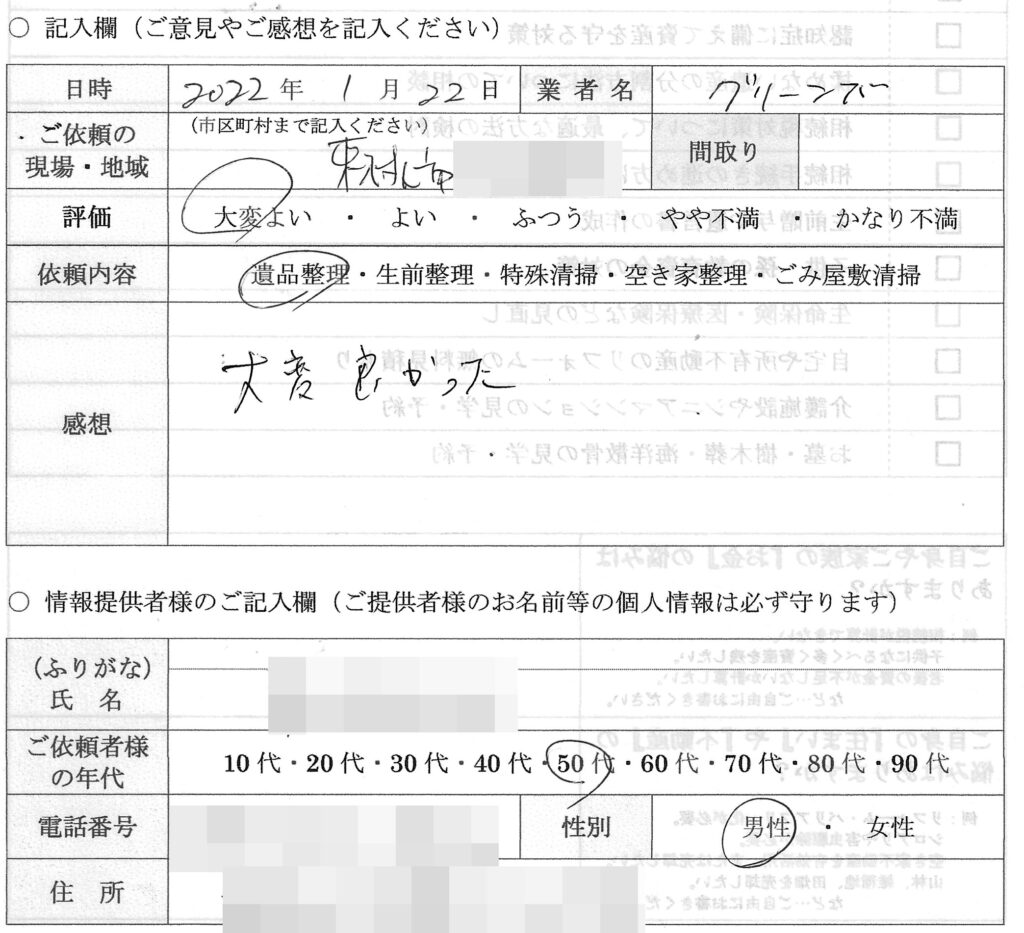 ○ 記入欄（ご意見やご感想を記入ください）
日時 2022 年 1 月 22 日 業者名 グリーンアー
ご依頼の現場・地域 （市区町村まで記入ください） 東村山市 間取り
評価 大変よい ・ よい ・ ふつう ・ やや不満 ・ かなり不満
依頼内容 遺品整理・生前整理・特殊清掃・空き家整理・ごみ屋敷清掃
感想 大変良かった
○ 情報提供者様のご記入欄（ご提供者様のお名前等の個人情報は必ず守ります）
（ふりがな）
氏 名
ご依頼者様の年代 10代・20代・30代・40代・50代・60代・70代・80代・90代
電話番号 性別 男性 ・ 女性
住 所